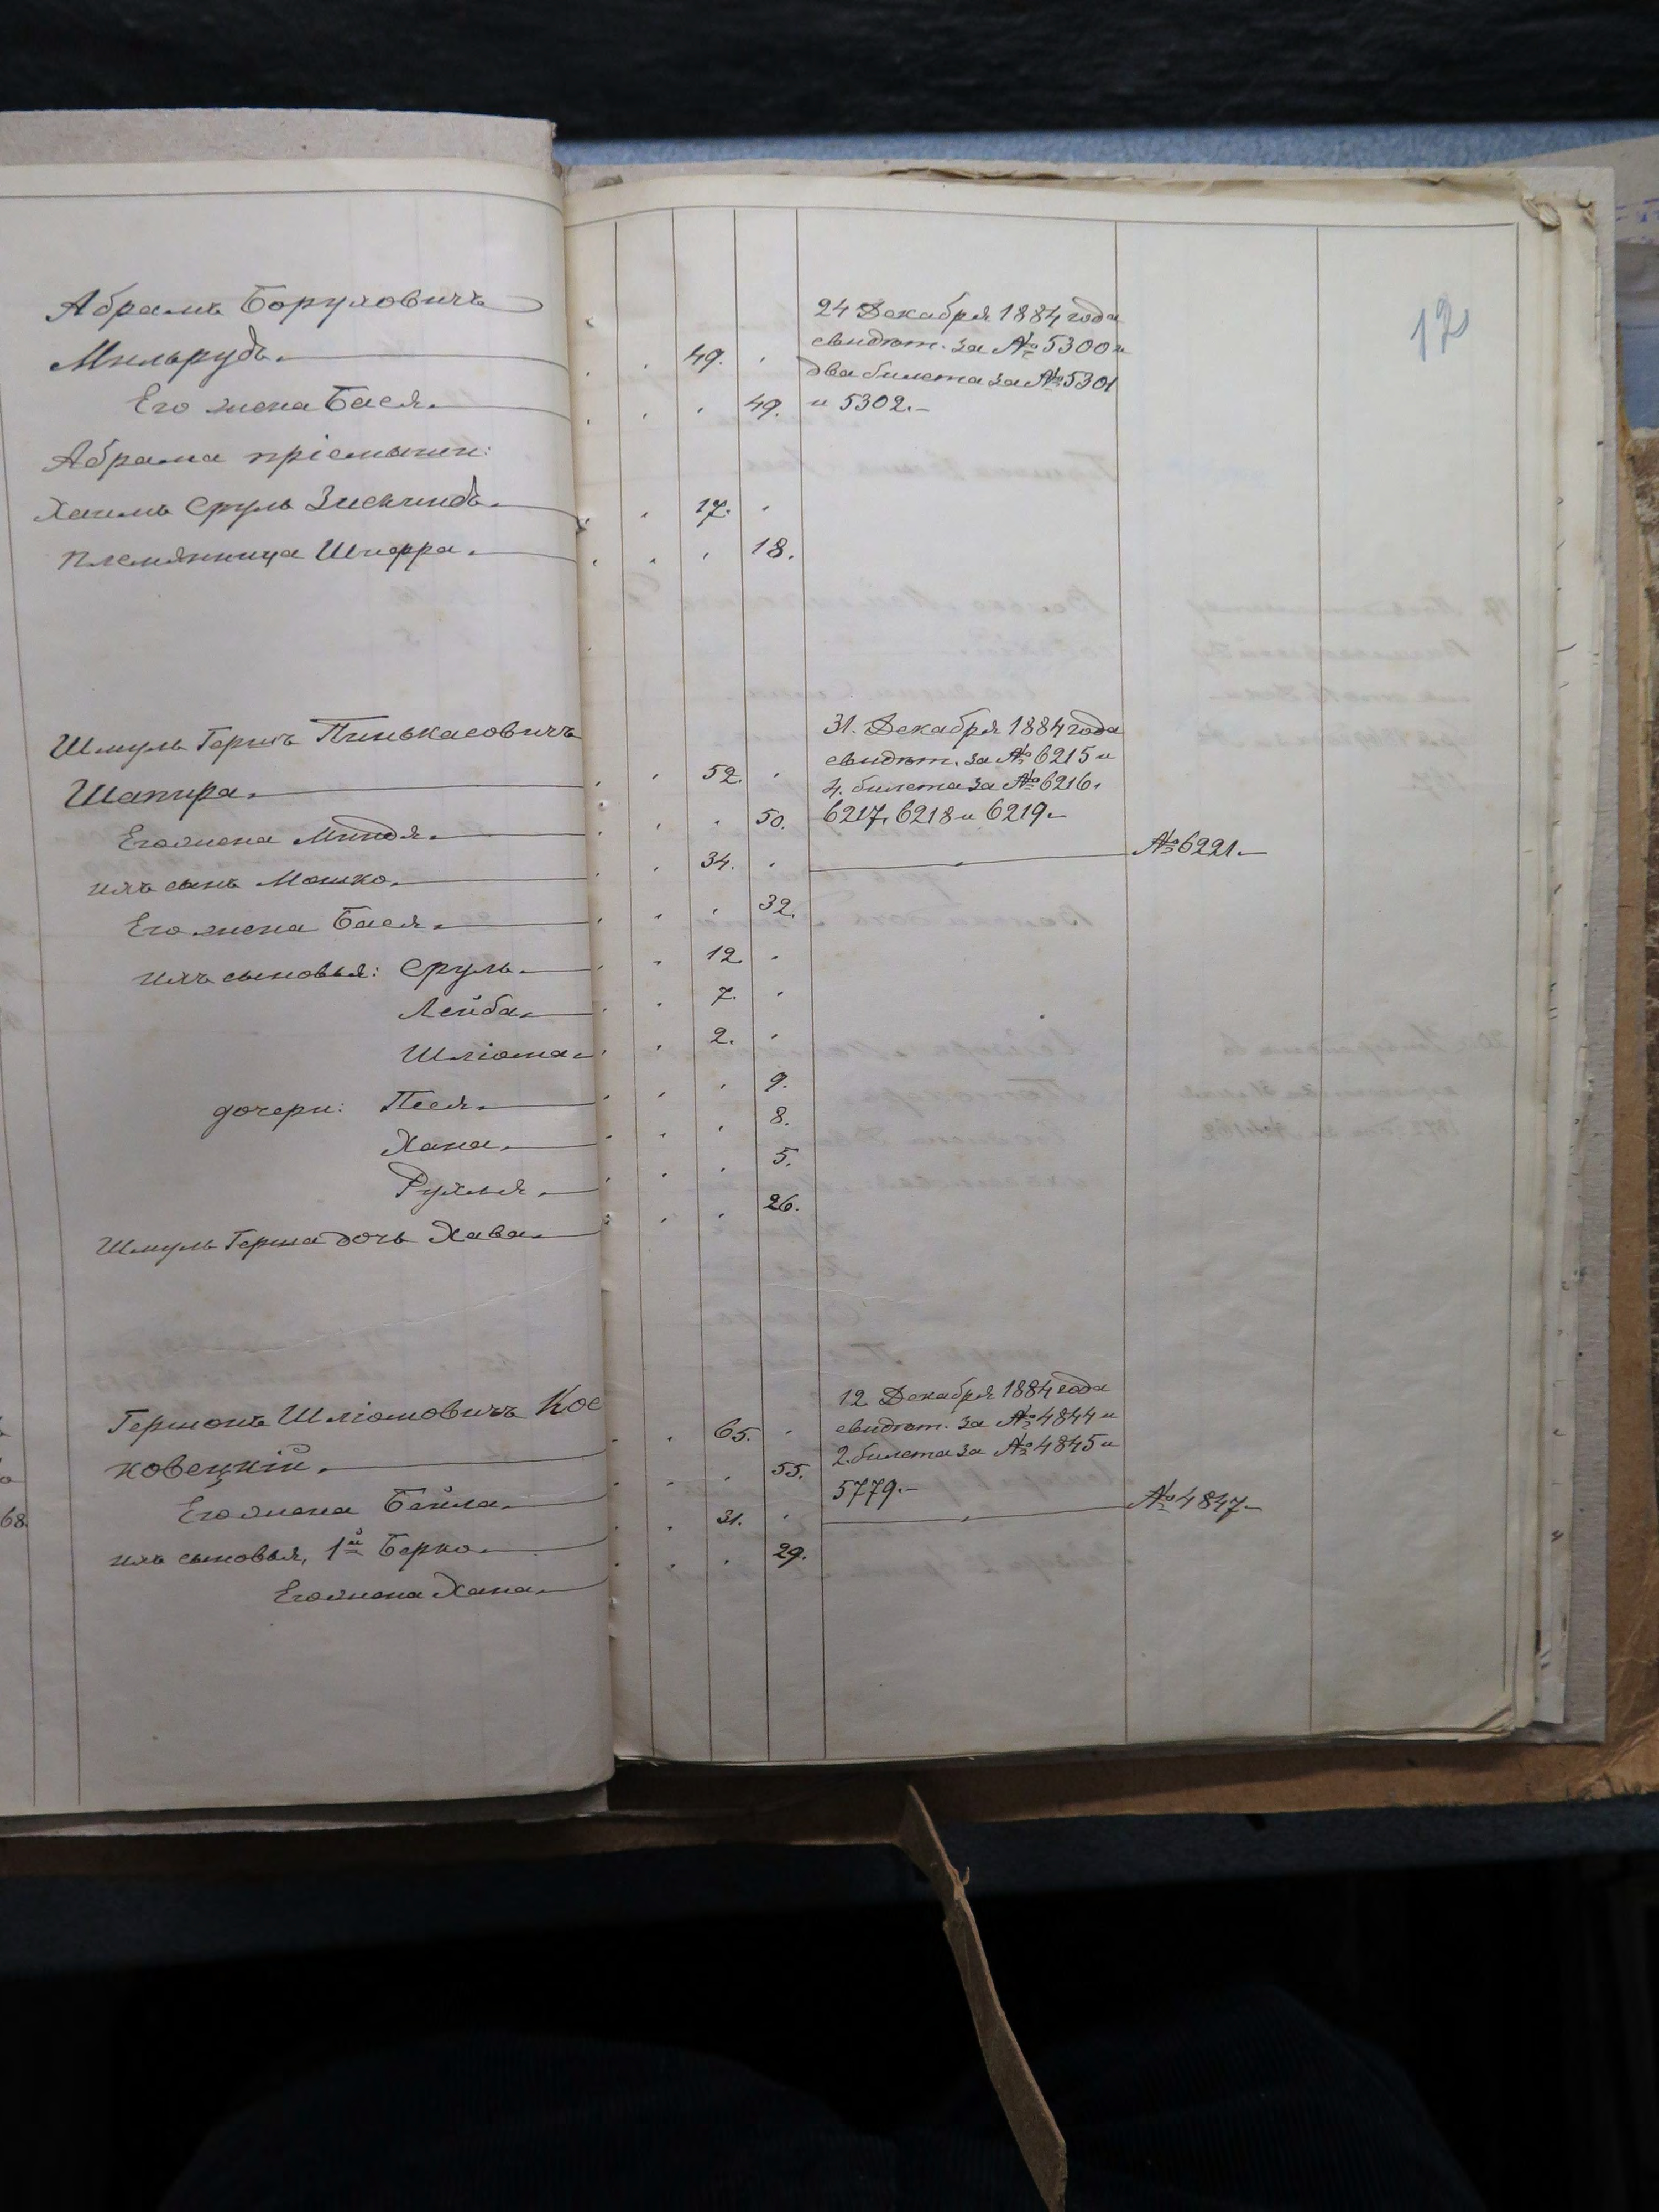 12
Абрамъ Боруховичъ
Мильрудъ. 49.
Его жена Бася. 49.
Абрама пріемыши:
Хаимъ Сруль Зискиндъ. 17.
племянница Шифра. 18.
24 Декабря 1884 года
свидѣт. за № 5300 и
два билета за № 5301
и 5302.
Шмуль Гершъ Пинькасовичъ
Шапира. 52.
Его жена Миндля. 50.
ихъ сынъ Мошко. 34.
Его жена Бася. 32.
ихъ сыновья: Сруль. 12.
Лейба. 7.
Шліома. 2.
дочери: Песя. 9.
Хана. 8.
Рухля. 5.
Шмуль Герша дочь Хава. 26.
31. Декабря 1884 года
свидѣт. за № 6215 и
4. билета за № 6216,
6217, 6218 и 6219.
№ 6221.
Гершонъ Шліомовичъ Кос
ковецкій. 65.
Его жена Бейла. 55.
ихъ сыновья, 1й Берко. 31.
Его жена Хана. 29.
12. Декабря 1884 года
свидѣт. за № 4844 и
2. билета за № 4845 и
5779.
№ 4847.
68